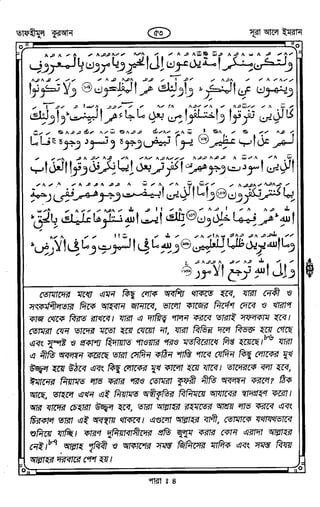 তাফহীমুল কুরআন
৫৩
সূরা আলে ইমরান
وَلْتَكُنْ مِّنْكُمْ أُمَّةٌ يَّدْعُوْنَ إِلَى الْخَيْرِ وَيَأْمُرُوْنَ بِالْمَعْرُوْفِ
وَيَنْهَوْنَ عَنِ الْمُنْكَرِ ۚ وَأُولٰئِكَ هُمُ الْمُفْلِحُوْنَ ۝ وَلَا تَكُوْنُوْا
كَالَّذِيْنَ تَفَرَّقُوْا وَاخْتَلَفُوْا مِنْ بَعْدِ مَا جَاءَهُمُ الْبَيِّنٰتُ ۚ وَأُولٰئِكَ
لَهُمْ عَذَابٌ عَظِيْمٌ ۝ يَّوْمَ تَبْيَضُّ وُجُوْهٌ وَّتَسْوَدُّ وُجُوْهٌ ۚ فَأَمَّا
الَّذِيْنَ اسْوَدَّتْ وُجُوْهُهُمْ أَكَفَرْتُمْ بَعْدَ إِيْمَانِكُمْ فَذُوْقُوا الْعَذَابَ
بِمَا كُنْتُمْ تَكْفُرُوْنَ ۝ وَأَمَّا الَّذِيْنَ ابْيَضَّتْ وُجُوْهُهُمْ فَفِيْ رَحْمَةِ
اللهِ ۚ هُمْ فِيْهَا خٰلِدُوْنَ ۝ تِلْكَ اٰيٰتُ اللهِ نَتْلُوْهَا عَلَيْكَ بِالْحَقِّ ۚ
وَمَا اللهُ يُرِيْدُ ظُلْمًا لِّلْعٰلَمِيْنَ ۝ وَلِلّٰهِ مَا فِي السَّمٰوٰتِ وَمَا فِي الْأَرْضِ ۚ
وَإِلَى اللهِ تُرْجَعُ الْأُمُوْرُ ۝
তোমাদের মধ্যে এমন কিছু লোক অবশ্যি থাকতে হবে, যারা নেকী ও
সৎকর্মশীলতার দিকে আহবান জানাবে, ভালো কাজের নির্দেশ দেবে ও খারাপ
কাজ থেকে বিরত রাখবে। যারা এ দায়িত্ব পালন করবে তারাই সফলকাম হবে।
তোমরা যেন তাদের মতো হয়ে যেয়ো না, যারা বিভিন্ন দলে বিভক্ত হয়ে গেছে
এবং সুস্পষ্ট ও প্রকাশ্য হিদায়াত পাওয়ার পরও মতবিরোধে লিপ্ত হয়েছে। যারা
এ নীতি অবলম্বন করেছে তারা সেদিন কঠিন শাস্তি পাবে যেদিন কিছু লোকের মুখ
উজ্জ্বল হয়ে উঠবে এবং কিছু লোকের মুখ কালো হয়ে যাবে। তাদেরকে বলা হবে,
ঈমানের নিয়ামত লাভ করার পরও তোমরা কুফরী নীতি অবলম্বন করলে? ঠিক
আছে, তাহলে এখন এই নিয়ামত অস্বীকৃতির বিনিময়ে আযাবের স্বাদগ্রহণ করো।
আর যাদের চেহারা উজ্জ্বল হবে, তারা আল্লাহর রহমতের আশ্রয় লাভ করবে এবং
চিরকাল তারা এই অবস্থায় থাকবে। এগুলো আল্লাহর বাণী, তোমাকে যথাযথভাবে
শুনিয়ে যাচ্ছি। কারণ দুনিয়াবাসীদের প্রতি জুলুম করার কোন এরাদা আল্লাহর
নেই। আল্লাহ পৃথিবী ও আকাশের সমস্ত জিনিসের মালিক এবং সমস্ত বিষয়
আল্লাহর দরবারে পেশ হয়।
পারা : ৪